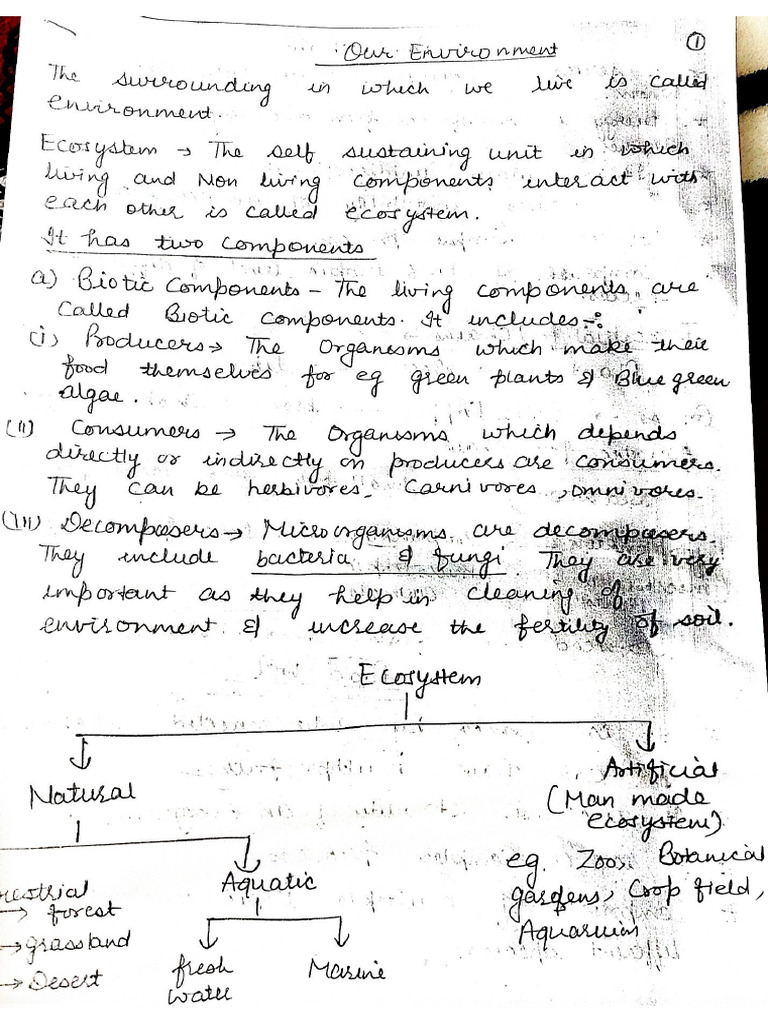 Our Environment
①
The surrounding in which we live is called
environment.
Ecosystem → The self sustaining unit in which
living and Non living components interact with
each other is called ecosystem.
It has two components
a) Biotic Components - The living components are
called Biotic components. It includes -:
(i) Producers → The Organisms which make their
food themselves for eg green plants & Blue green
algae.
(ii) Consumers → The Organisms which depends
directly or indirectly on producers are consumers.
They can be herbivores, Carnivores, omnivores.
(iii) Decomposers → Microorganisms are decomposers.
They include bacteria & fungi They are very
important as they help in cleaning of
environment & increase the fertility of soil.
Ecosystem
Natural
Artificial
(Man made
ecosystem)
eg. Zoo, Botanical
gardens, Crop field,
Aquarium
restrial
→ forest
→ grassland
→ Desert
Aquatic
fresh
water
Marine